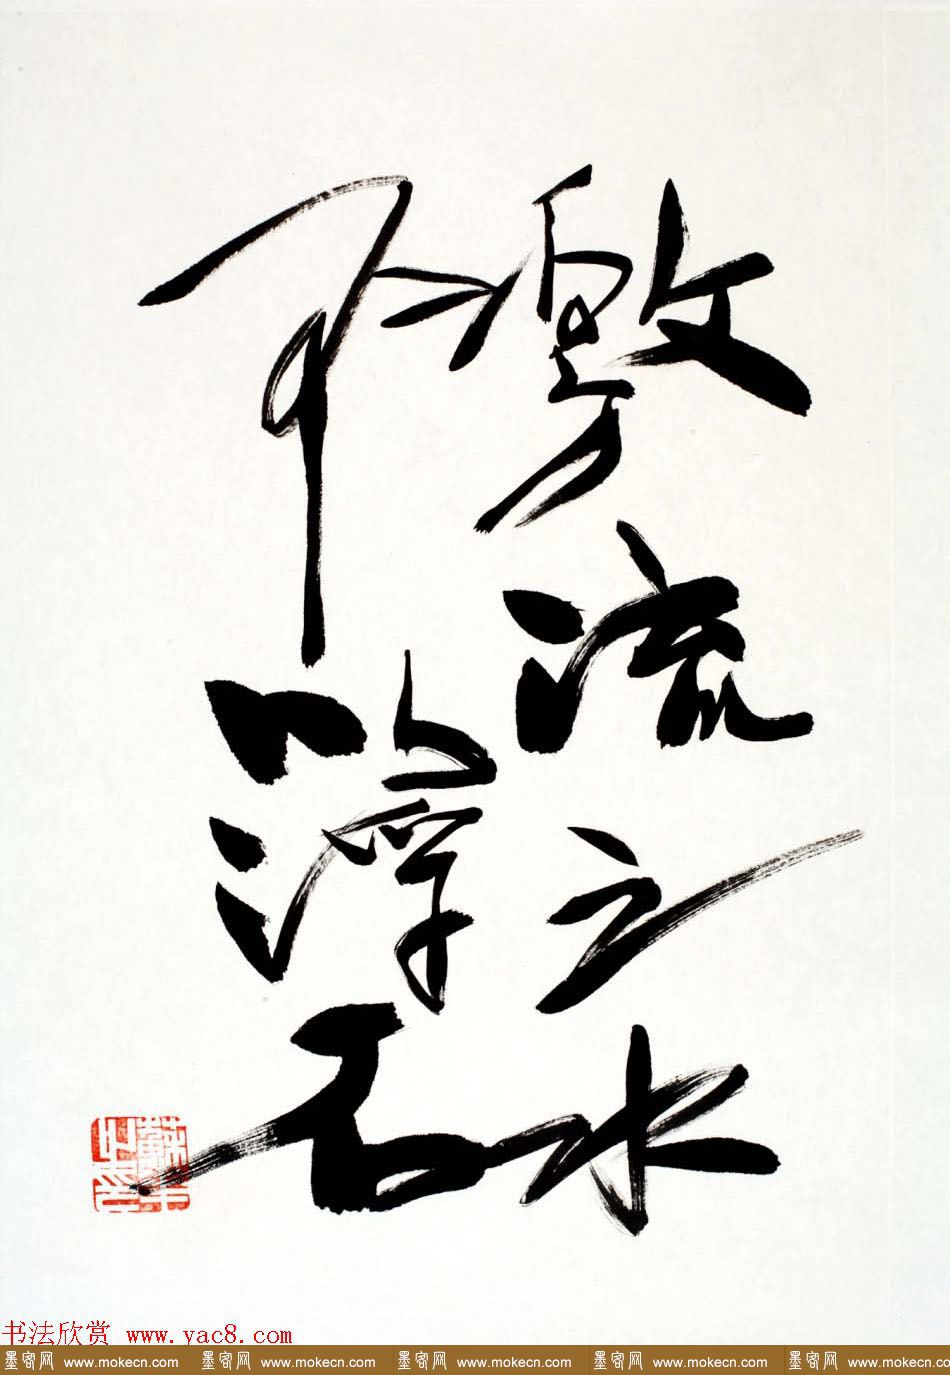 激流之水
以浮石
书法欣赏 www.yac8.com
墨客网 www.mokecn.com 墨客网 www.mokecn.com 墨客网 www.mokecn.com 墨客网 www.mokecn.com 墨客网 www.mokecn.com